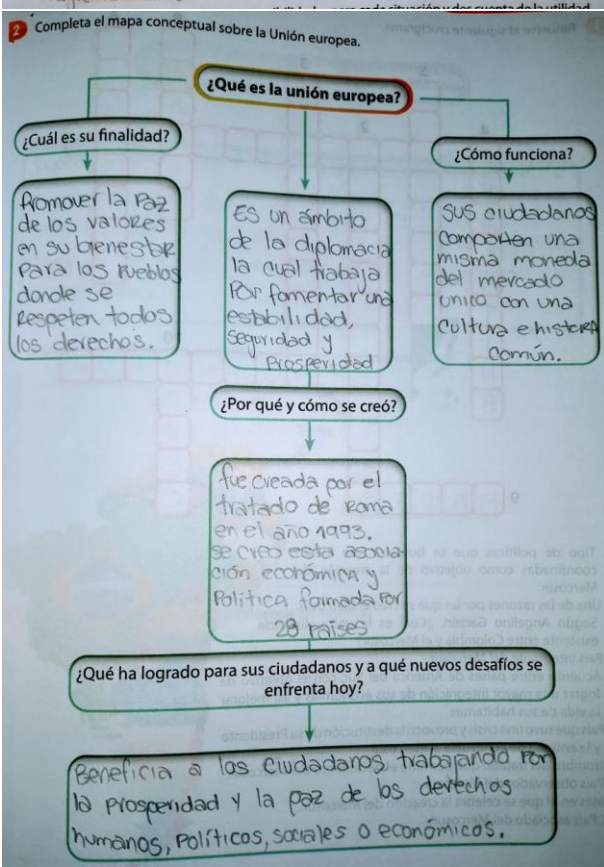 2 Completa el mapa conceptual sobre la Unión europea.
¿Qué es la unión europea?
¿Cuál es su finalidad?
¿Cómo funciona?
Promover la Paz
de los valores
en su bienestar
Para los Pueblos
donde se
Respeten todos
los derechos.
ES un ámbito
de la diplomacia
la cual trabaja
Por fomentar una
estabilidad,
seguridad y
Prosperidad
SUS ciudadanos
comparten una
misma moneda
del mercado
unico con una
cultura e historia
común.
¿Por qué y cómo se creó?
fue creada por el
tratado de Roma
en el año 1993.
se creo esta asocia-
ción económica y
Política formada Por
28 países
¿Qué ha logrado para sus ciudadanos y a qué nuevos desafíos se
enfrenta hoy?
Beneficia a los ciudadanos trabajando Por
la prosperidad y la paz de los derechos
humanos, Políticos, sociales o económicos.